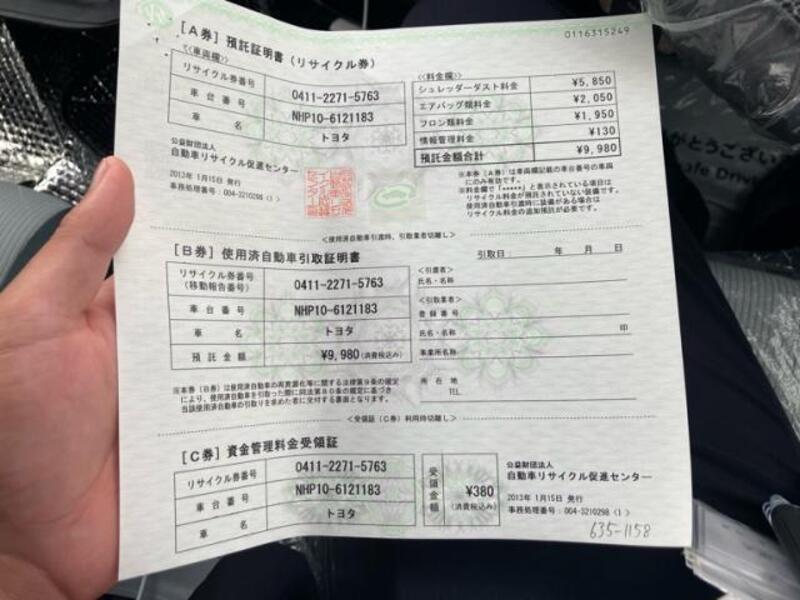 0116315249
[A券] 預託証明書(リサイクル券)
<車両欄>
リサイクル券番号 0411-2271-5763
車台番号 NHP10-6121183
車名 トヨタ
<料金欄>
シュレッダーダスト料金 ¥5,850
エアバッグ類料金 ¥2,050
フロン類料金 ¥1,950
情報管理料金 ¥130
預託金額合計 ¥9,980
公益財団法人
自動車リサイクル促進センター
2013年 1月15日 発行
事務処理番号:004-3210298〈1〉
※本券〔A券〕は車両欄記載の車台番号の車両
にのみ有効です。
※料金欄で「*****」と表示されている項目は
リサイクル料金が預託されていない装備です。
使用済自動車引渡時に装備がある場合は
リサイクル料金の追加預託が必要です。
<使用済自動車引渡時、引取業者切離し>
[B券] 使用済自動車引取証明書
引取日: 年 月 日
リサイクル券番号
(移動報告番号) 0411-2271-5763
車台番号 NHP10-6121183
車名 トヨタ
預託金額 ¥9,980(消費税込み)
<引渡者>
氏名・名称
<引取業者>
登録番号
氏名・名称 印
事業所名称
所在地
TEL
※本券〔B券〕は使用済自動車の再資源化等に関する法律第9条の規定
により、使用済自動車を引取った際に同法第80条の規定に基づき
当該使用済自動車の引取りを求めた者に交付する書面となります。
<受領証(C券)利用時切離し>
[C券] 資金管理料金受領証
リサイクル券番号 0411-2271-5763
車台番号 NHP10-6121183
車名 トヨタ
受領金額 ¥380
(消費税込み)
公益財団法人
自動車リサイクル促進センター
2013年 1月15日 発行
事務処理番号:004-3210298〈1〉
635-1158
がとうござい
afe Driv